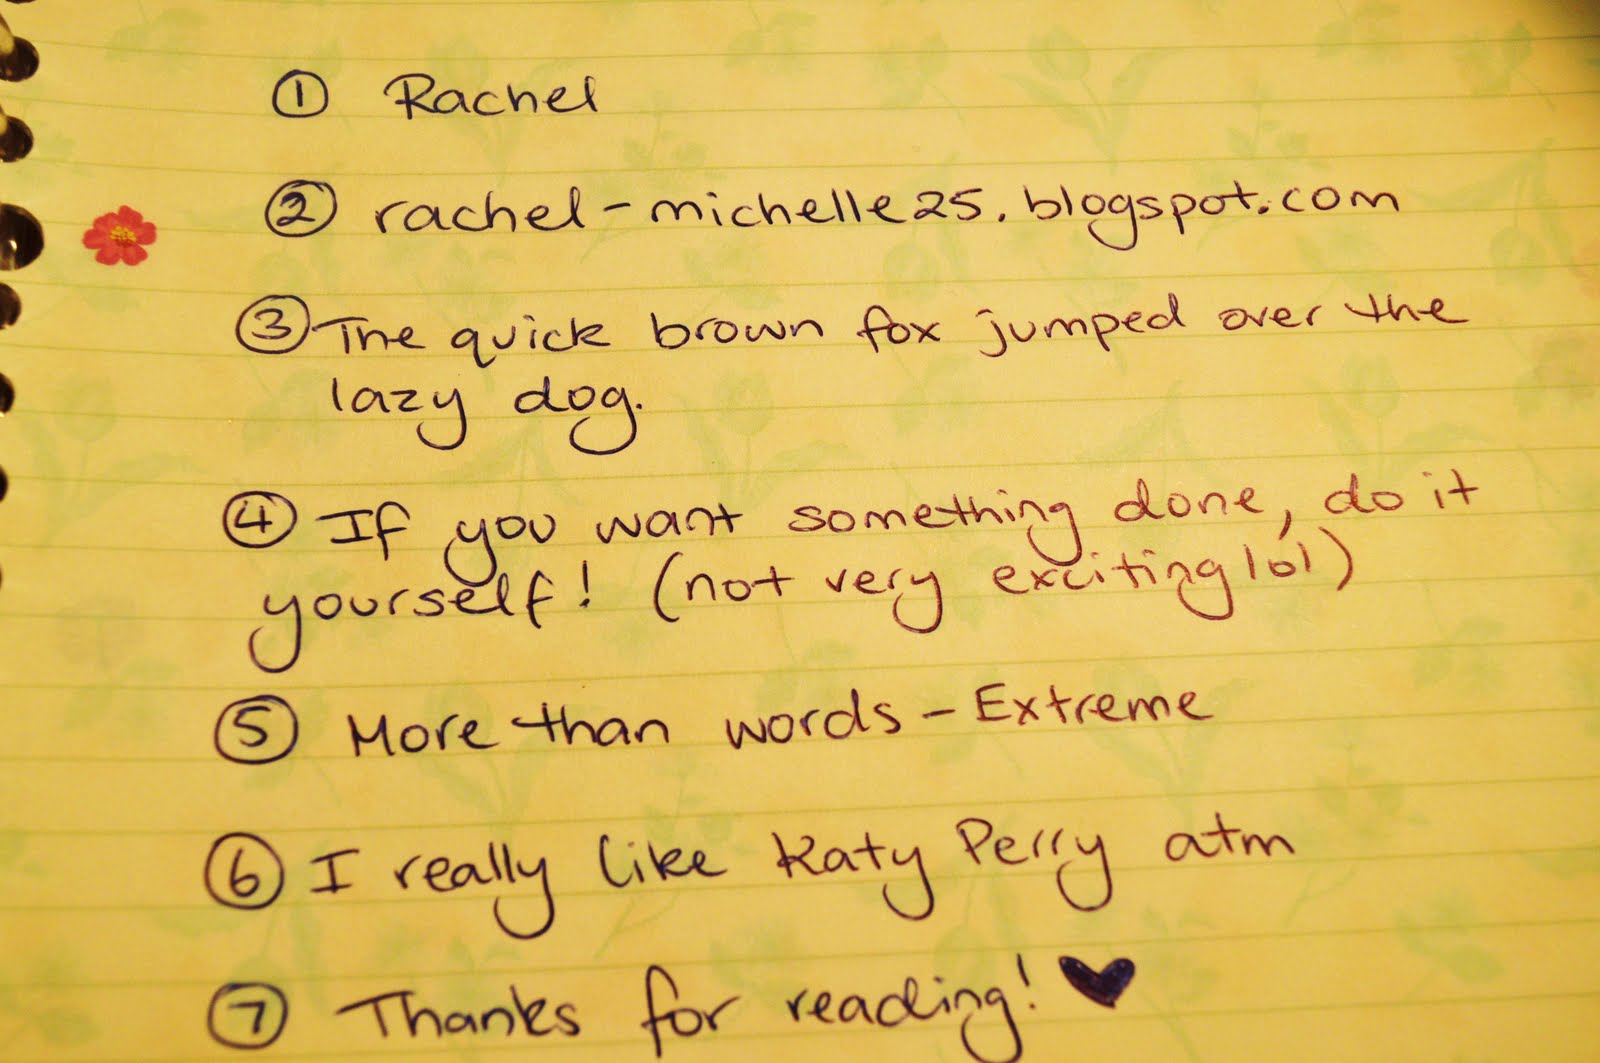 ① Rachel
② rachel-michelle25.blogspot.com
③ The quick brown fox jumped over the
lazy dog.
④ If you want something done, do it
yourself! (not very exciting lol)
⑤ More than words - Extreme
⑥ I really like Katy Perry atm
⑦ Thanks for reading! ♥